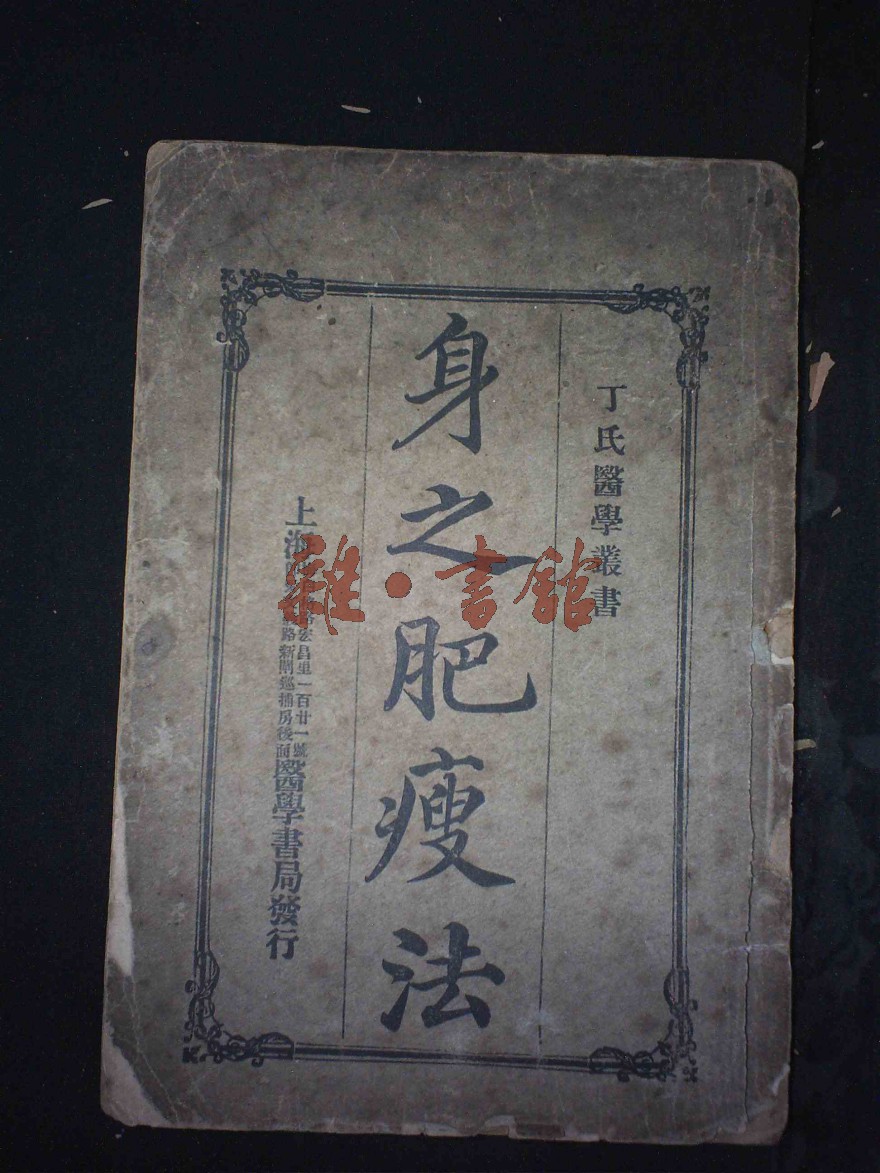 丁氏醫學叢書
身之肥瘦法
上海
宏昌里一百廿一號
路新閘巡捕房後面
醫學書局發行
雜·書館